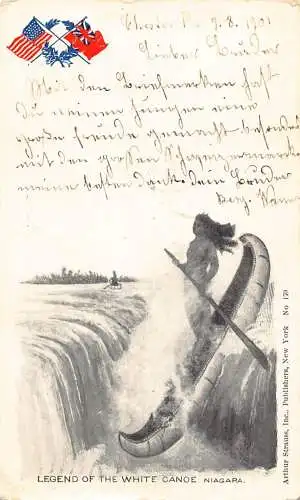 Chester Pa 9.8.1901
Lieber Bruder
Mit den Briefmarken hast
du meinen Jungen eine
große freude gemacht besonders
mit den großen
meinen besten Dank dein Bruder
LEGEND OF THE WHITE CANOE NIAGARA.
Arthur Strauss, Inc., Publishers, New York No 179